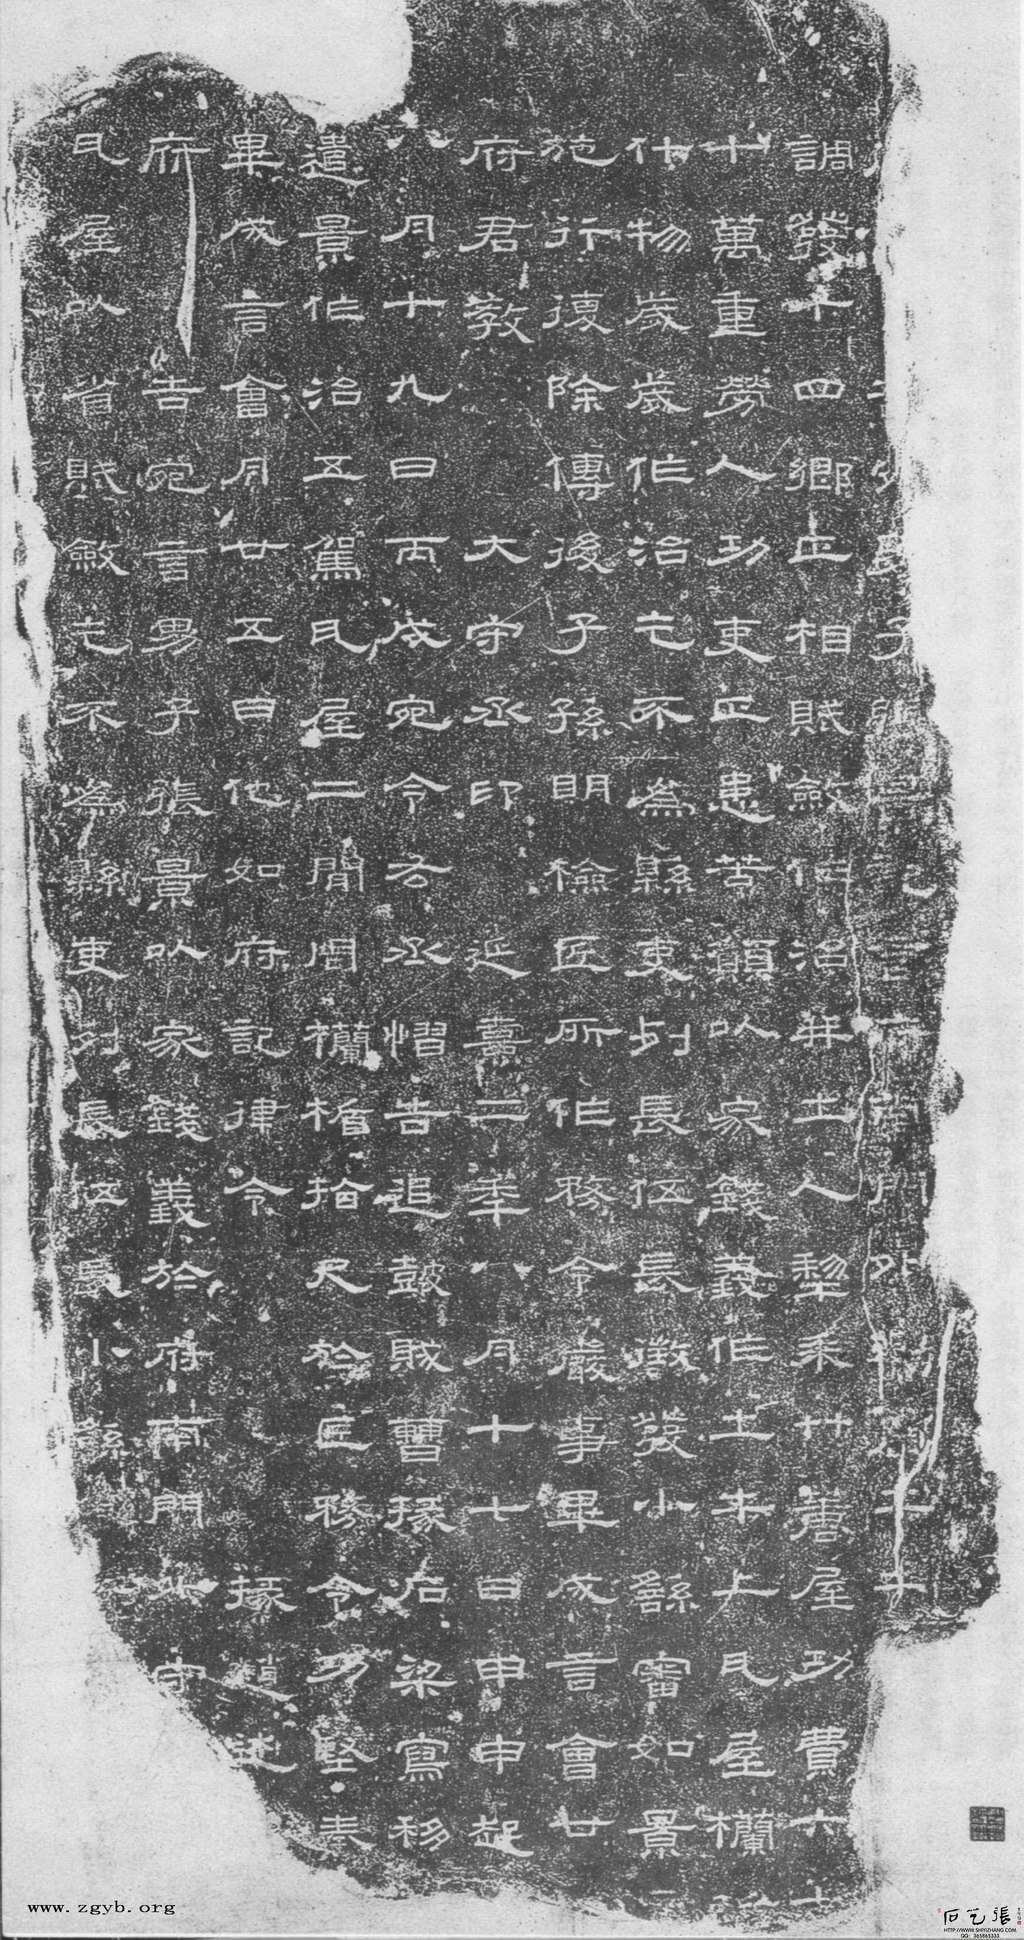 府 南 子 張 景 記 言 府 南 門 外 勸 土 牛
調發十四鄉正相賦斂作治并土人犂耒艹蓆屋功費六十
十萬重勞人功吏正患苦願以家錢義作土牛上瓦屋欄
什物歲歲作治乞不為縣吏列長伍長徵發小繇審如景
施行復除傳後子孫明檢匠所作務令嚴事畢成言會廿
府君教大守丞印延熹二年八月十七日甲申起
八月十九日丙戌宛令右丞慴告追鼓賊曹掾石梁寫移
遣景作治五駕瓦屋二間周欄楯拾尺於匠務令功堅奉
畢成言會月廿五日他如府記律令掾趙述
府告宛言男子張景以家錢義於府南門外守
瓦屋以省賦斂乞不為縣吏列長伍長小繇
www.zgyb.org
張艺石
HTTP://WWW.SHIYIZHANG.COM
QQ: 365865333